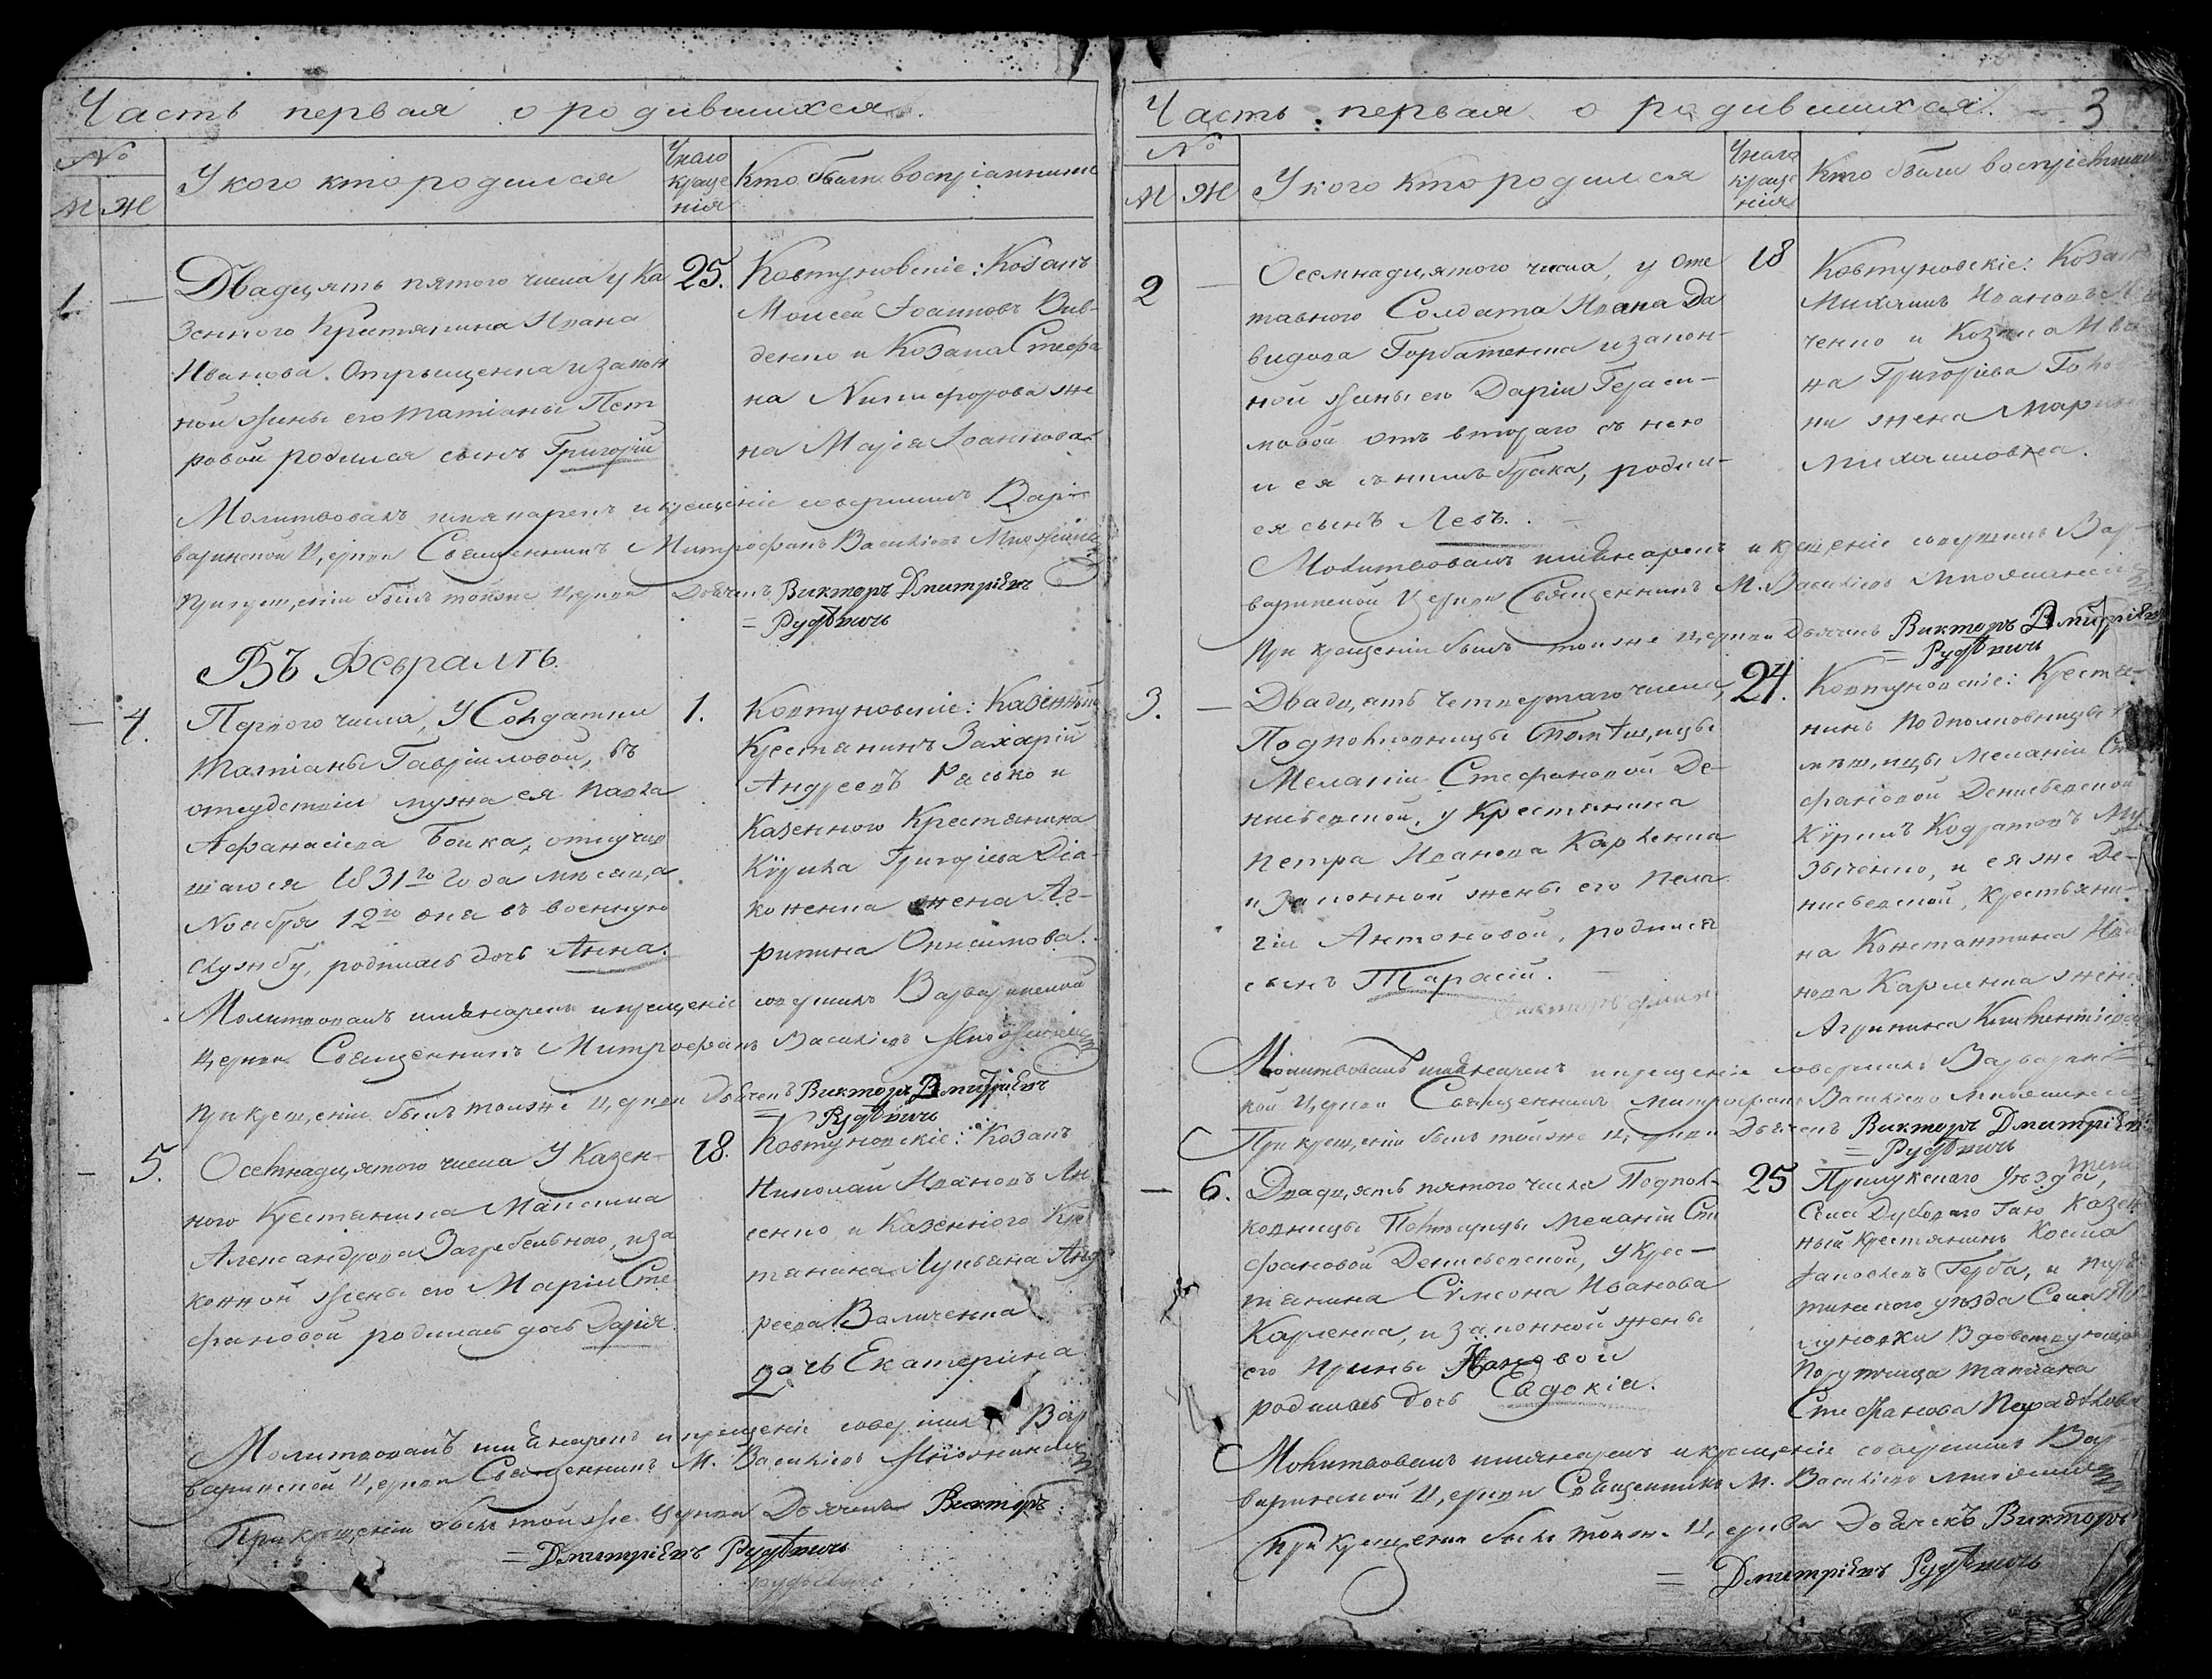 Часть первая о родившихся.
№
М Ж
У кого кто родился
Число креще нія
Кто были воспріемники
1. —
Двадцять пятого числа у Ка
зенного Крестянина Ивана
Иванова Отрыщенка и закон
ной жены его Татіаны Пет
ровой родился сынъ Григорій
25.
Ковтуновскіе: Козакъ
Моисей Іоанновъ Вив-
денко и Козака Стефа
на Никифорова же
на Марія Іоаннова.
Молитвовалъ имянарекъ и крещеніе совершилъ Варъ
варинской Церкви Священникъ Митрофанъ Василіевъ
При крещеніи былъ тойже Церкви Дьячекъ Викторъ Дмитріевъ
= Рудѣвичь
Въ Февралѣ.
— 4.
Первого числа, У Солдатки
Татіаны Гавріиловой, въ
отсудствіи мужа ея Павла
Афанасіева Бойка, отлучив
шагося 1831го Года мѣсяца
Ноября 12го дня въ военную
службу, родилась дочь Анна.
1.
Ковтуновскіе: Казенный
Крестянинъ Захарій
Андреевъ и
Казенного Крестянина
Кѵрила Григоріева Діа-
коненка жена Аг-
рипина Онисимова.
Молитвовалъ имянарекъ и крещеніе совершилъ Варваринской
Церкви Священникъ Митрофанъ Василіевъ
При крещеніи былъ тойже Церкви Дьячекъ Викторъ Дмитріевъ
= Рудѣвичь
— 5.
Осемнадцятого числа У Казен-
ного Крестянина Максима
Александрова Загребельного, и за
конной жены его Маріи Сте
фановой родилась дочь Дарія.
18.
Ковтуновскіе: Козакъ
Николай Ивановъ Ли
сенко, и Казенного Кре
стянина Лукьяна Анд
реева Величенка
дочь Екатерина
Молитвовалъ имянарекъ и крещеніе совершилъ Вар
варинской Церкви Священникъ М. Василіевъ
При крещеніи былъ тойже Церкви Дьячекъ Викторъ
= Дмитріевъ Рудѣвичь
Часть первая о родившихся. — 3
№
М Ж
У кого кто родился
Числа креще нія
Кто были воспріемники
2 —
Осемнадцятого числа, у Отс
тавного Солдата Ивана Да
видова Горбатенка и закон-
ной жены его Даріи Гераси-
мовой отъ втораго съ нею
и ея съ нимъ брака, родил-
ся сынъ Левъ.
18
Ковтуновскіе: Козакъ
Михаилъ Ивановъ
ченко и Козака Ива
на Григорьева
ни жена Марина
Михаиловна.
Молитвовалъ имянарекъ и крещеніе совершилъ Вар-
варинской Церкви Священникъ М. Василіевъ
При крещеніи былъ тойже Церкви Дьячекъ Викторъ Дмитріевъ
= Рудѣвичь
3. —
Двадцять четвертаго числа,
Подполковницы Помѣщицы
Меланіи Стефановой Де-
нисьевской, у Крестянина
Петра Иванова Карпенка
и законной жены его Пела
гіи Антоновой, родился
сынъ Тарасій.
24.
Ковтуновскіе: Крестя-
нинъ Подполковницы По
мѣщицы Меланіи Сте
фановой Денисьевской
Кѵрилъ Кодратовъ Му
зыченко, и ея же Де-
нисьевской, Крестьяни-
на Константина Ива
нова Карпенка жена
Агрипина
Молитвовалъ имянарекъ и крещеніе совершилъ Варваринс
кой Церкви Священникъ Митрофанъ Василіевъ
При крещеніи былъ тойже Церкви Дьячекъ Викторъ Дмитріевъ
= Рудѣвичь
— 6.
Двадцять пятого числа Подпол-
ковницы Помѣщицы Меланіи Сте
фановой Денисьевской, У Крес-
тянина Сѵмеона Иванова
Карпенка, и законной жены
его Ирины
родилась дочь Евдокія.
25
Прилукского Уѣзда,
Села Дубового Гаю Казен
ный Крестянинъ Косма
Яковлевъ Герба, и
уѣзда Села
Вдовствующая
Порутчица Татіана
Стефанова
Молитвовалъ имянарекъ и крещеніе совершилъ Вар-
варинской Церкви Священникъ М. Василіевъ
При крещеніи былъ тойже Церкви Дьячекъ Викторъ
= Дмитріевъ Рудѣвичь